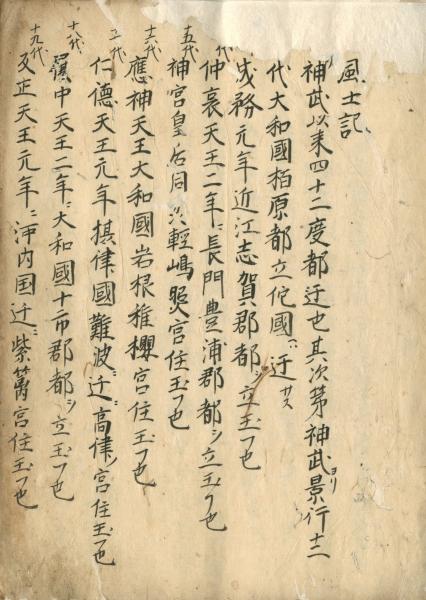 風土記
神武以来四十二度都迁也其次第神武ヨリ景行十二
代大和國栢原都立佗國ニ迁サス
成務元年近江志賀郡都ヲ立玉フ也
代
仲哀天王二年ニ長門豊浦郡都ヲシ立玉フ也
十五代
神宮皇后同
十六代
應神天王大和國岩根稚櫻宮住玉フ也
仁德天王元年摂津國難波ニ迁ニ高津ノ宮住玉フ也
十八代
中天王二年ニ大和國十市郡都シ立玉フ也
十九代
反正天王元年ニ河内国迁ニ紫篱宮住玉フ也